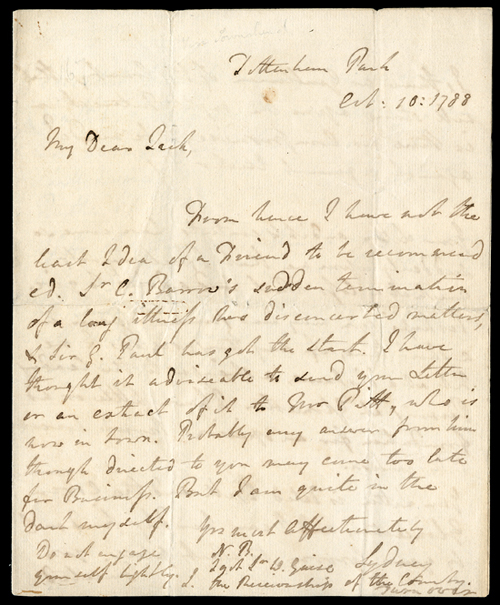 Tottenham Park
Oct: 10: 1788
My Dear Jack,
From hence I have not the
least Idea of a Friend to be recommend
ed. Sr C. Barrow's sudden termination
of a long illness has disconcerted matters,
& Sir G. Paul has got the start. I have
thought it adviseable to send your Letter
or an extract of it to Mr Pitt, who is
now in town. Probably any answer from him
though directed to you may come too late
for Business. But I am quite in the
dark myself. Yrs most affectionately
Sydney
Do not engage
yourself lightly.
N.B.
I got Sr W. Guise
the Receivership of the County.
turn over